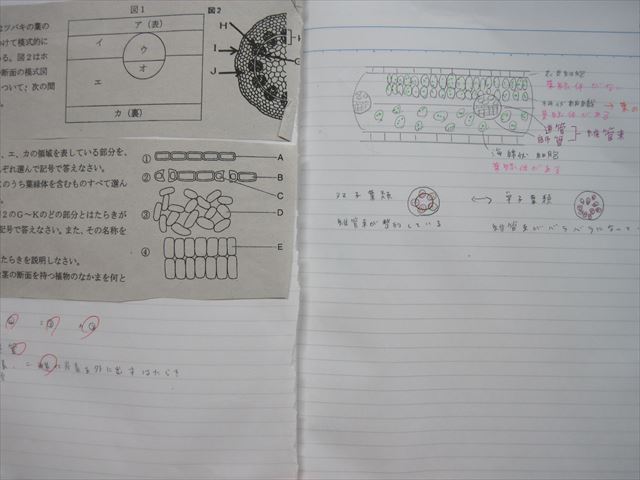 図1
図2
はツバキの葉の
つけて模式的に
いる。図2はホ
断面の模式図
ついて、次の問
ア(表)
イ
ウ
オ
エ
カ(裏)
H
I
J
G
、エ、カの領域を表している部分を、
ぞれ選んで記号で答えなさい。
のうち葉緑体を含むものすべて選ん
2のG〜Kのどの部分とはたらきが
記号で答えなさい。また、その名称を
たらきを説明しなさい。
な葉の断面を持つ植物のなかまを何と
① A
② B
C
③ D
④ E
葉緑体がない
葉緑体がある
道管
師管
維管束
海綿状組織
葉緑体がある
双子葉類
⟷
単子葉類
維管束が整列している
維管束がバラバラになって
を外に出すはたらき